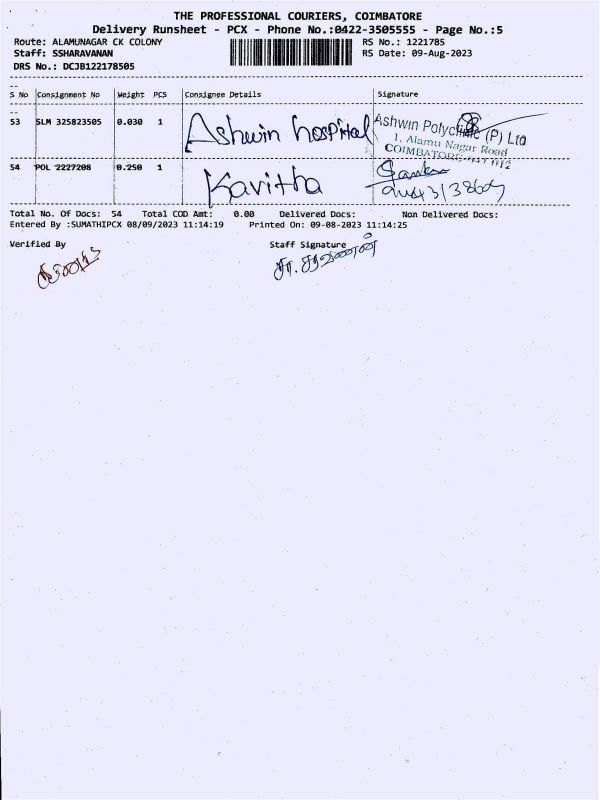 THE PROFESSIONAL COURIERS, COIMBATORE
Delivery Runsheet - PCX - Phone No.:0422-3505555 - Page No.:5
Route: ALAMUNAGAR CK COLONY RS No.: 1221785
Staff: SSHARAVANAN RS Date: 09-Aug-2023
DRS No.: DCJB122178505
S No Consignment No Weight PCS Consignee Details Signature
53 SLM 325823505 0.030 1 Ashwin hospital Ashwin Polyclinic (P) Ltd
1, Alamu Nagar Road
COIMBATORE
54 POL 2227208 0.250 1 Kavitha
Total No. Of Docs: 54 Total COD Amt: 0.00 Delivered Docs: Non Delivered Docs:
Entered By :SUMATHIPCX 08/09/2023 11:14:19 Printed On: 09-08-2023 11:14:25
Verified By Staff Signature
சா. சரவணன்